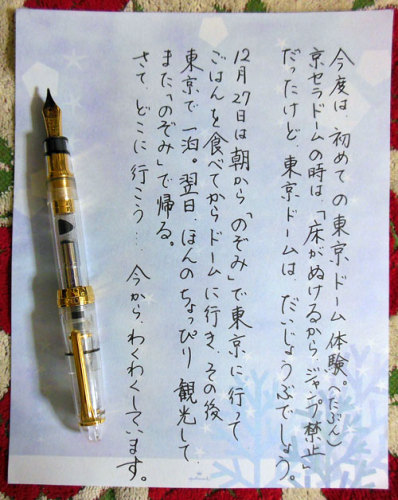 今度は、初めての東京ドーム体験。(たぶん)
京セラドームの時は「床がぬけるから、ジャンプ禁止」
だったけど、東京ドームは、だいじょうぶでしょう。
12月27日は朝から「のぞみ」で東京に行って
ごはんを食べてからドームに行き、その後
東京で一泊。翌日、ほんのちょっぴり観光して
また「のぞみ」で帰る。
さて、どこに行こう…. 今から、わくわくしています。